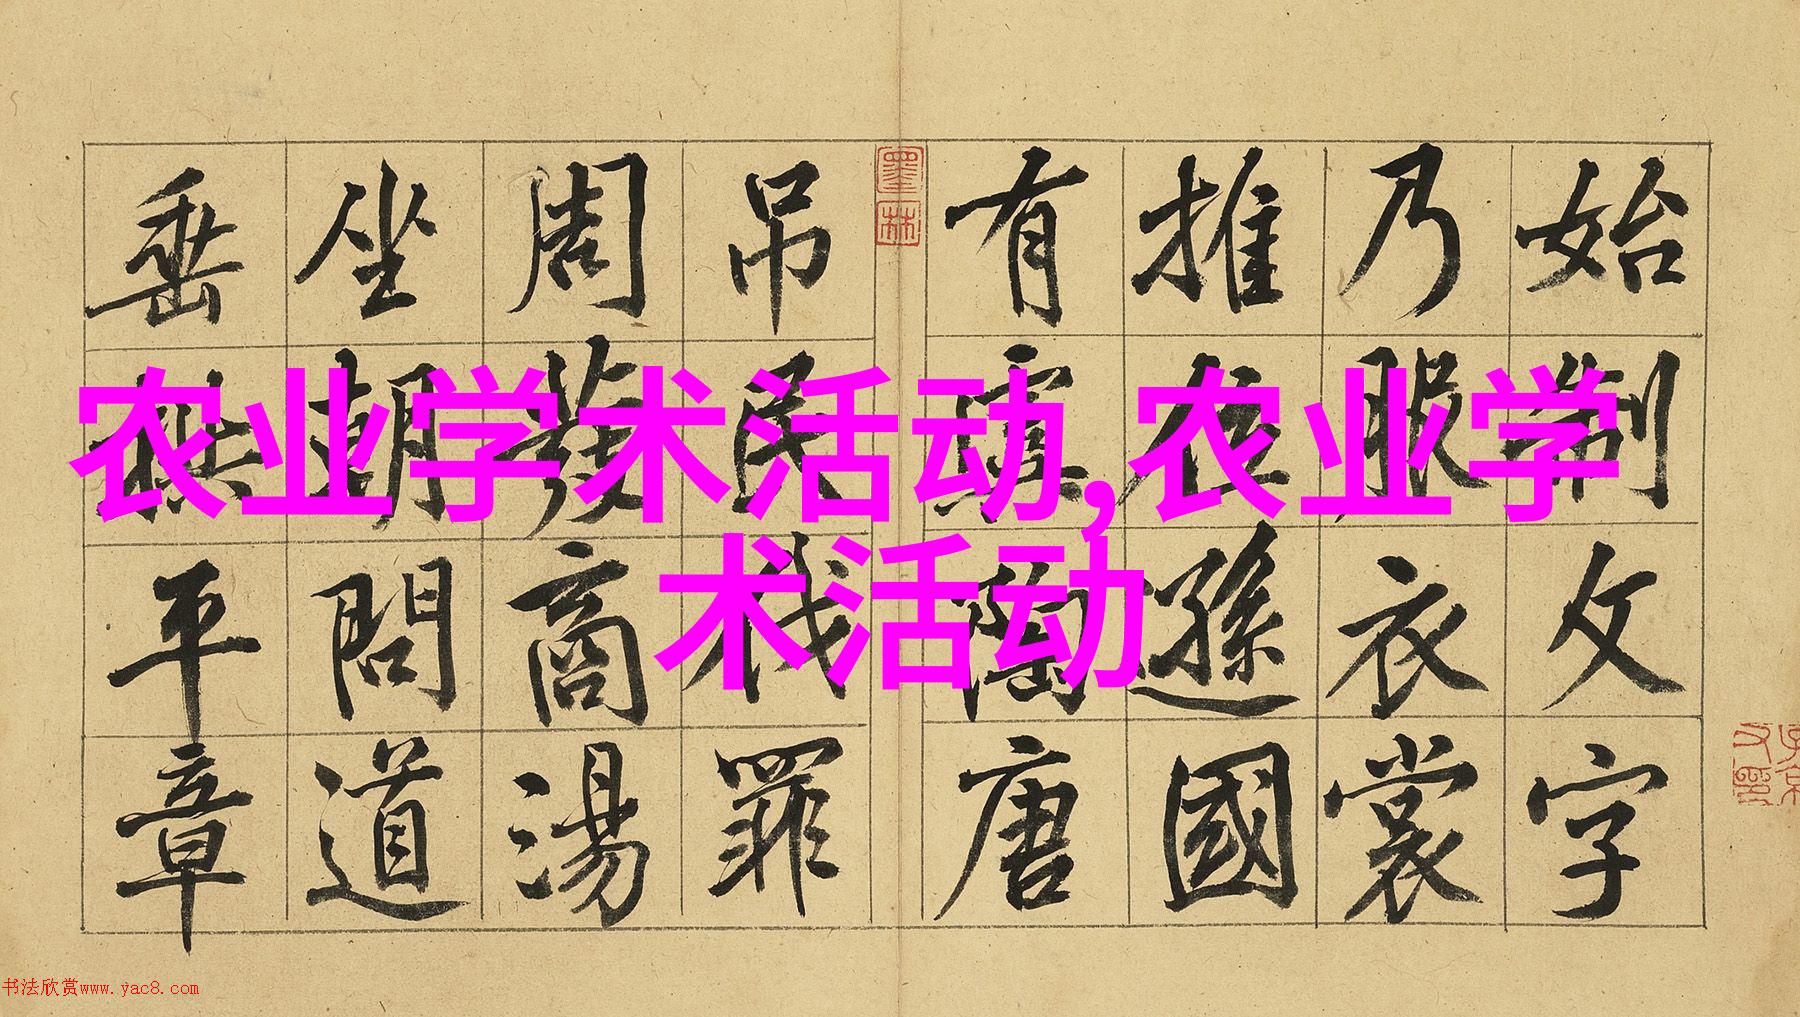 农业学术活动,农业学
术活动
始制文字
乃服衣裳
推位遜國
有虞陶唐
吊民伐罪
周發商湯
坐朝問道
垂拱平章
墨林
书法欣赏www.yac8.com